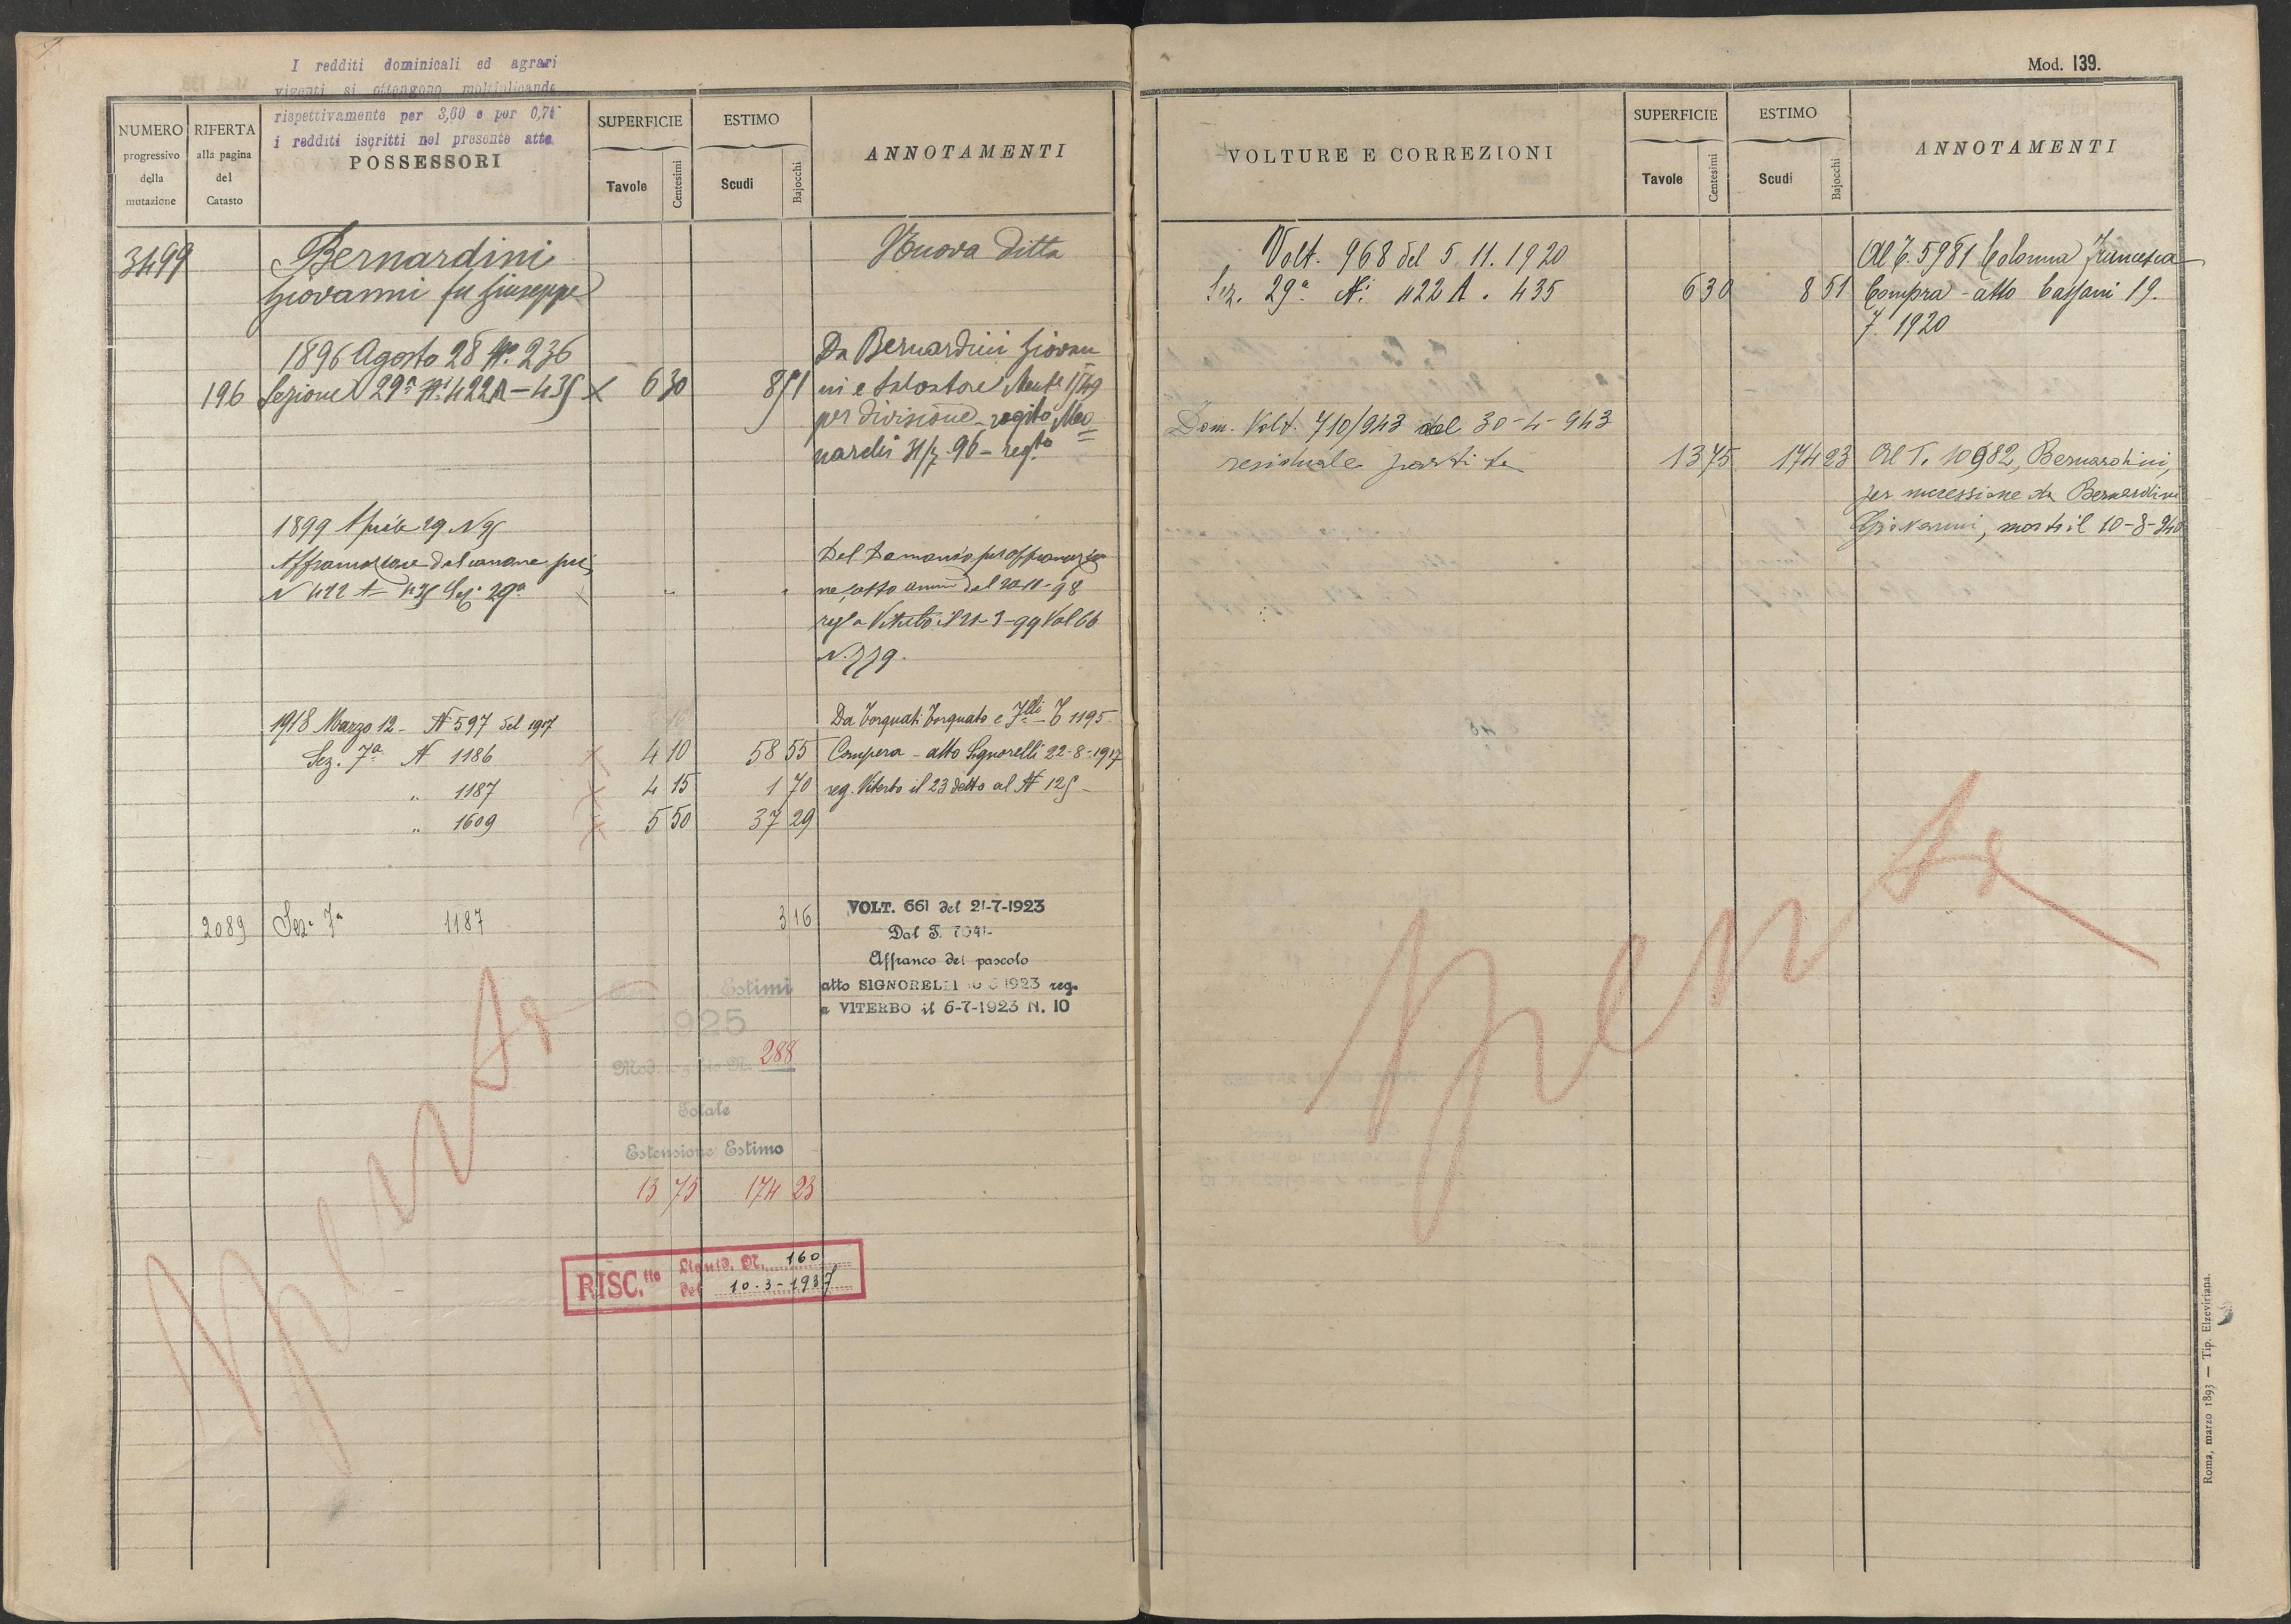 I redditi dominicali ed agrari
vigenti si ottengono moltiplicando
rispettivamente per 3,60 e per 0,75
i redditi iscritti nel presente atto
NUMERO progressivo della mutazione
RIFERTA alla pagina del Catasto
POSSESSORI
SUPERFICIE
Tavole Centesimi
ESTIMO
Scudi Bajocchi
ANNOTAMENTI
3499 Bernardini Nuova Ditta
Giovanni fu Giuseppe
1896 Agosto 28 N.º 236 Da Bernardini Giovan
196 Sezione 29ª Nⁱ 422A - 435 X 6 30 8 51 ni e Salvatore
per divisione - rogito Meo
nardis 31/7 96 - reg.to
1899 Aprile 29 N 95
Affrancazione del canone pei Del Demanio per affrancazio
N 422 A 435 Sez. 29ª ne, atto amm del 20-11-98
reg a Viterbo il 21-3-99 Vol 66
N. 779.
1918 Marzo 12 - N 597 del 1917 Da Torquati Torquato e F.lli - T 1195
Sez. 7ª N 1186 X 4 10 58 55 Compera - atto Signorelli 22-8-1917
" 1187 X 4 15 1 70 reg. Viterbo il 23 detto al N 125 -
" 1609 X 5 50 37 29
2089 Sez. 7ª 1187 3 16 VOLT. 661 del 21-7-1923
Dal T. 7041-
Affranco del pascolo
Estimi atto SIGNORELLI 1923 reg.
a VITERBO il 6-7-1923 N. 10
1925
Mod. N. 288
Totale
Estensione Estimo
13 75 174 23
RISC.tto Liquid. N. 160
del 10-3-1937
Spenta
Mod. 139.
VOLTURE E CORREZIONI
SUPERFICIE
Tavole Centesimi
ESTIMO
Scudi Bajocchi
ANNOTAMENTI
Volt. 968 del 5.11.1920 Al T. 5981 Colonna Francesca
Sez. 29ª Nⁱ 422 A. 435 6 30 8 51 Compra - atto Cassani 19.
7. 1920
Dom. Volt. 710/943 del 30-4-943
residuale partita 13 75 174 23 Al T. 10982, Bernardini,
per successione da Bernardini
Giovanni, morto il 10-8-940
Spenta
Roma, marzo 1893 — Tip. Elzeviriana.